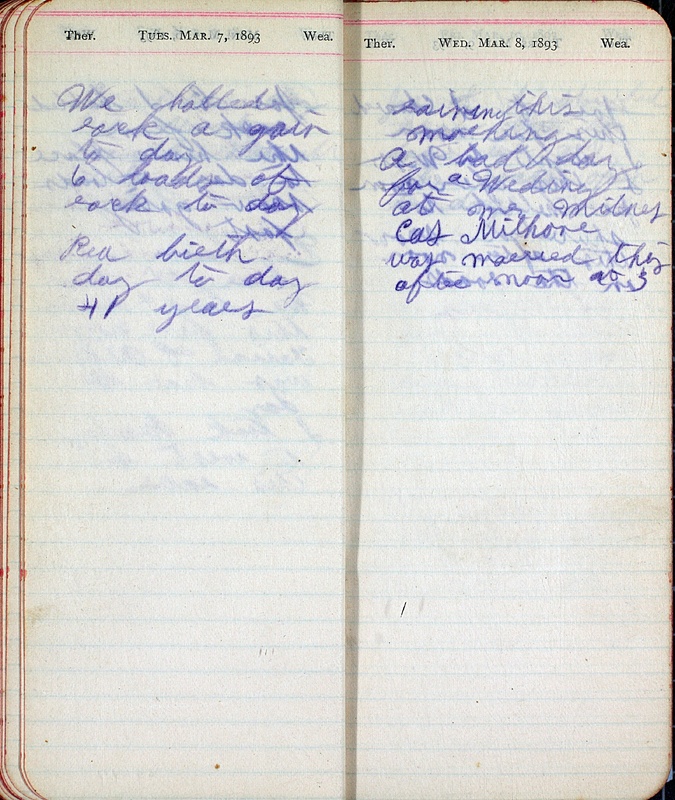 Ther. TUES. MAR. 7, 1893 Wea.
We halled
rock a gain
to day
6 loads of
rock to day
birth
day to day
41 years
Ther. WED. MAR. 8, 1893 Wea.
raining this
morning
A bad day
for a Weding
at
Cas Milhone
was married this
afternoon at 3